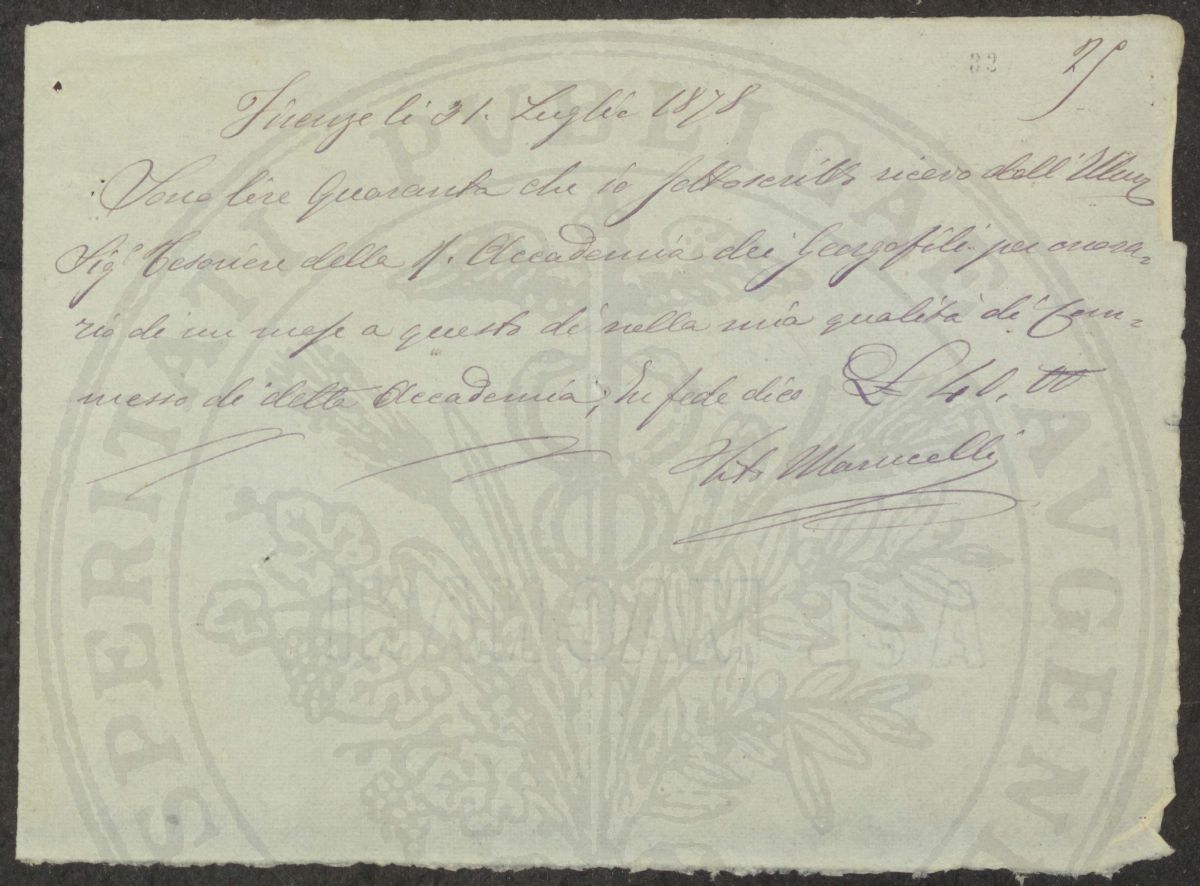 32
25
Firenze li 31. Luglio 1878
Sono lire Quaranta che io sottoscritto ricevo dall'Illmo
Sigr Tesoriere della R. Accademia dei Georgofili per onora-
rio di un mese a questo dì nella mia qualità di Com-
messo di detta Accademia; In fede dico £ 40,00
Vito Marucelli
PROSPERITATI PVBLICAE AVGENDAE